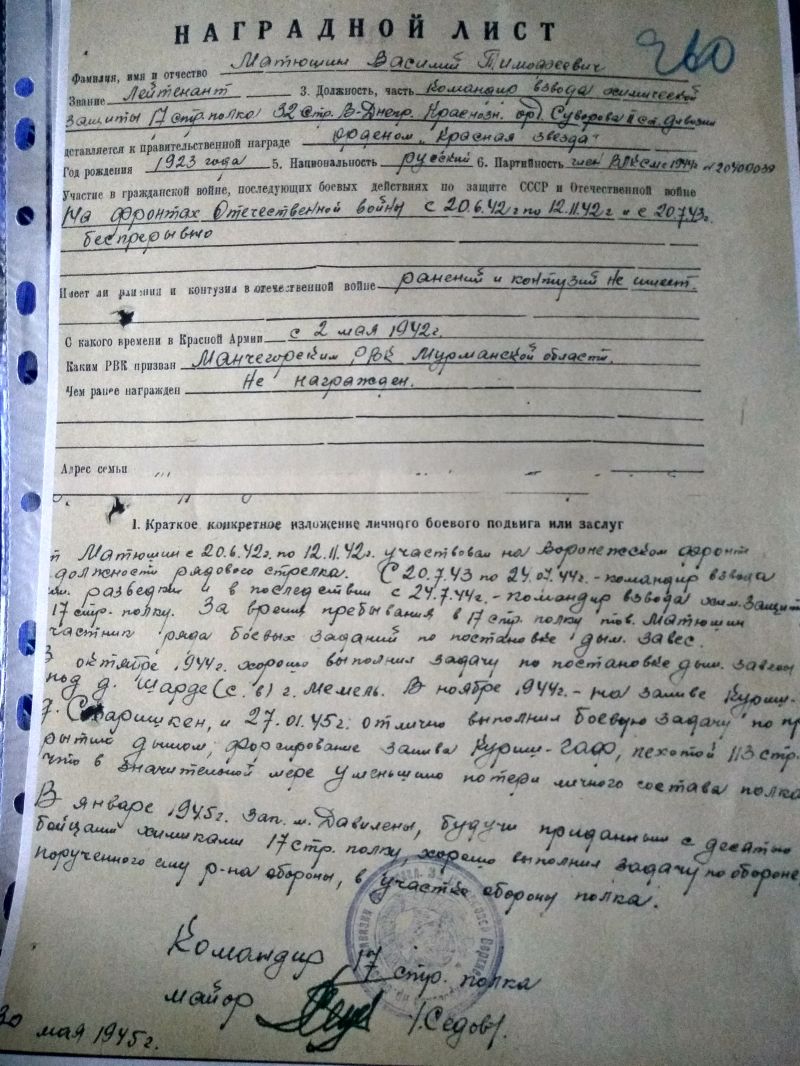 НАГРАДНОЙ ЛИСТ
Фамилия, имя и отчество Матюшин Василий Тимофеевич
Звание Лейтенант 3. Должность, часть Командир взвода химической
защиты 17 стр. полка 32 стр. В-Днепр. Краснозн. орд. Суворова II ст. дивизии
дставляется к правительственной награде орденом „Красная звезда"
Год рождения 1923 года 5. Национальность русский 6. Партийность член ВЛКСМ с 1944г. №20400039
Участие в гражданской войне, последующих боевых действиях по защите СССР и Отечественной войне
На фронтах Отечественной войны с 20.6.42г по 12.11.42г и с 20.7.43г.
беспрерывно
Имеет ли ранения и контузия в отечественной войне ранений и контузий не имеет.
С какого времени в Красной Армии с 2 мая 1942г.
Каким РВК призван Манчегорским РВК Мурманской области.
Чем ранее награжден Не награжден.
Адрес семьи
I. Краткое конкретное изложение личного боевого подвига или заслуг
т Матюшин с 20.6.42г. по 12.11.42г. участвовал на Воронежском фронт
должности рядового стрелка. С 20.7.43 по 24.07.44г. - командир взвода
разведки и в последствии с 24.7.44г. - командир взвода хим. защит
17 стр. полку. За время пребывания в 17 стр. полку тов. Матюшин
частник ряда боевых заданий по постановке дым. завес.
В октябре 1944г. хорошо выполнил задачу по постановке дым. завесы
под д. Шарде (с. в) г. Мемель. В ноябре 1944г. - на заливе Куриш-
и 27.01.45г. отлично выполнил боевую задачу по пр
рытию дымом, форсирование залива Куриш-Гаф, пехотой 113 стр.
что в значительной мере уменьшило потери личного состава полка
В январе 1945г. зап. м. Давилены, будучи приданным с десятью
бойцами химиками 17 стр. полку, хорошо выполнил задачу по обороне
порученного ему р-на обороны, в участке обороны полка.
Командир 17 стр. полка
майор /Седов/.
30 мая 1945г.